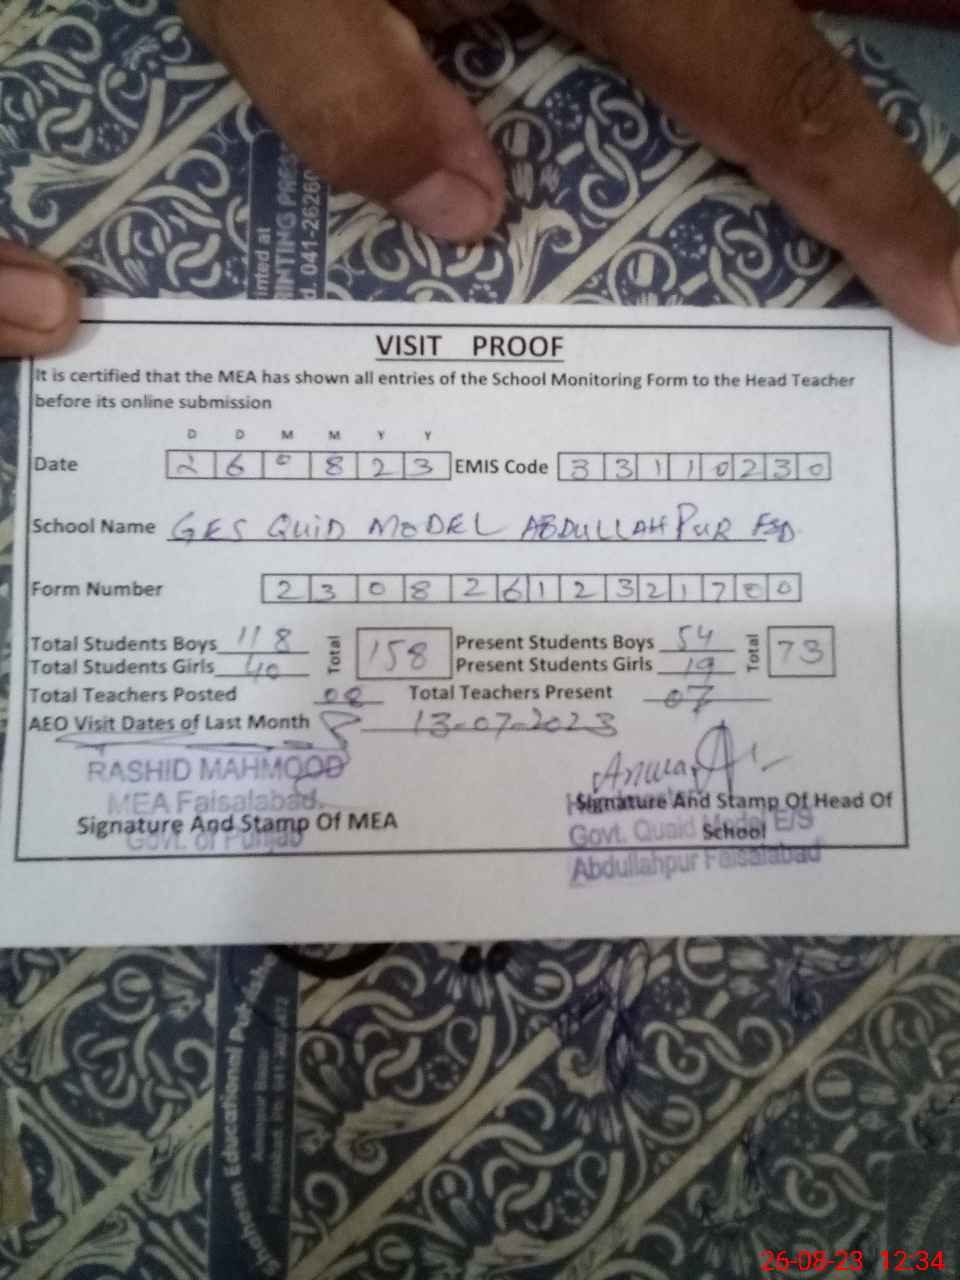 inted at
INTING PRES
d. 041-26260
VISIT PROOF
It is certified that the MEA has shown all entries of the School Monitoring Form to the Head Teacher
before its online submission
D D M M Y Y
Date 2 6 0 8 2 3 EMIS Code 3 3 1 1 0 2 3 0
School Name GES QUID MODEL ABDULLAH PUR FSD
Form Number 2 3 0 8 2 6 1 2 3 2 1 7 0 0
Total Students Boys 118 Total 158 Present Students Boys 54 Total 73
Total Students Girls 40 Present Students Girls 19
Total Teachers Posted 08 Total Teachers Present 07
AEO Visit Dates of Last Month 13-07-2023
RASHID MAHMOOD
MEA Faisalabad.
Govt. of Punjab
Signature And Stamp Of MEA
Anwar
Signature And Stamp Of Head Of
School
Govt. Quaid Model E/S
Abdullahpur Faisalabad
Educational
26-08-23 12:34